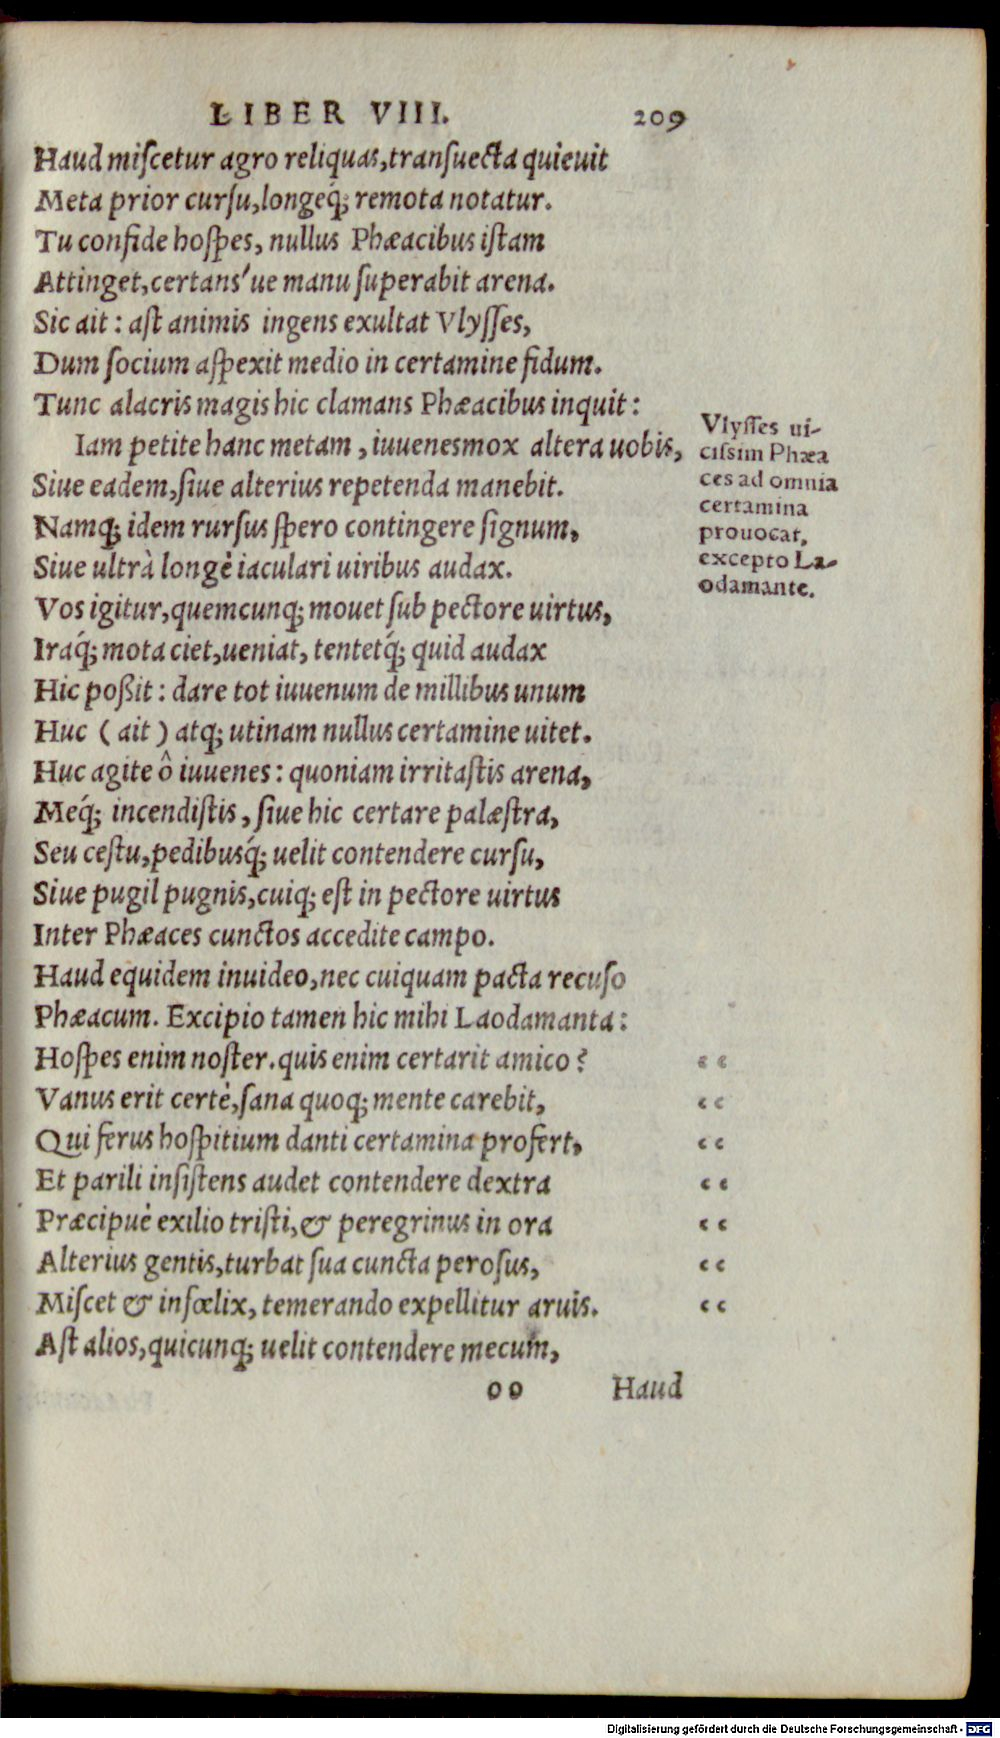 LIBER VIII. 209
Haud miſcetur agro reliquas,tranſuecta quieuit
Meta prior curſu,longeq́; remota notatur.
Tu confide hoſpes, nullus Phæacibus iſtam
Attinget,certans'ue manu ſuperabit arena.
Sic ait : aſt animis ingens exultat Vlyſſes,
Dum ſocium aſpexit medio in certamine fidum.
Tunc alacris magis hic clamans Phæacibus inquit :
Iam petite hanc metam , iuuenesmox altera uobis,
Siue eadem,ſiue alterius repetenda manebit.
Namq; idem rurſus ſpero contingere ſignum,
Siue ultrà longè iaculari uiribus audax.
Vos igitur,quemcunq; mouet ſub pectore uirtus,
Iraq́; mota ciet,ueniat, tentetq́; quid audax
Hic poßit : dare tot iuuenum de millibus unum
Huc ( ait ) atq; utinam nullus certamine uitet.
Huc agite ô iuuenes : quoniam irritaſtis arena,
Meq́; incendiſtis , ſiue hic certare palæſtra,
Seu ceſtu,pedibusq́; uelit contendere curſu,
Siue pugil pugnis,cuiq; eſt in pectore uirtus
Inter Phæaces cunctos accedite campo.
Haud equidem inuideo,nec cuiquam pacta recuſo
Phæacum. Excipio tamen hic mihi Laodamanta :
Hoſpes enim noſter.quis enim certarit amico ? “
Vanus erit certè,ſana quoq; mente carebit, “
Qui ferus hoſpitium danti certamina profert, “
Et parili inſiſtens audet contendere dextra “
Præcipuè exilio triſti,& peregrinus in ora “
Alterius gentis,turbat ſua cuncta peroſus, “
Miſcet & infœlix, temerando expellitur aruis. “
Aſt alios,quicunq; uelit contendere mecum,
oo Haud
Vlyſſes ui-
ciſsim Phæa
ces ad omnia
certamina
prouocat,
excepto La-
odamante.
Digitalisierung gefördert durch die Deutsche Forschungsgemeinschaft - DFG